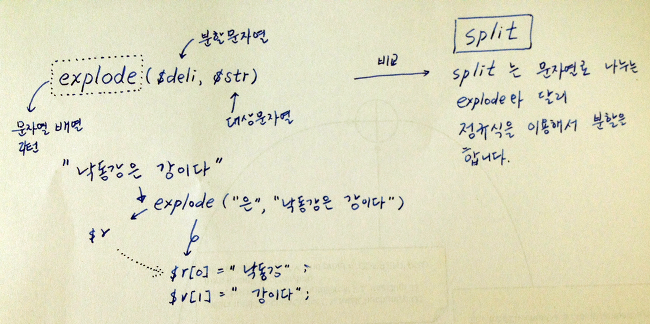 분할문자열
explode ($deli, $str)
문자열 배열
리턴
대상문자열
비교
split
split 는 문자열로 나누는
explode와 달리
정규식을 이용해서 분할을
합니다.
"낙동강은 강이다"
explode ("은", "낙동강은 강이다")
$r
$r[0] = "낙동강" ;
$r[1] = " 강이다";